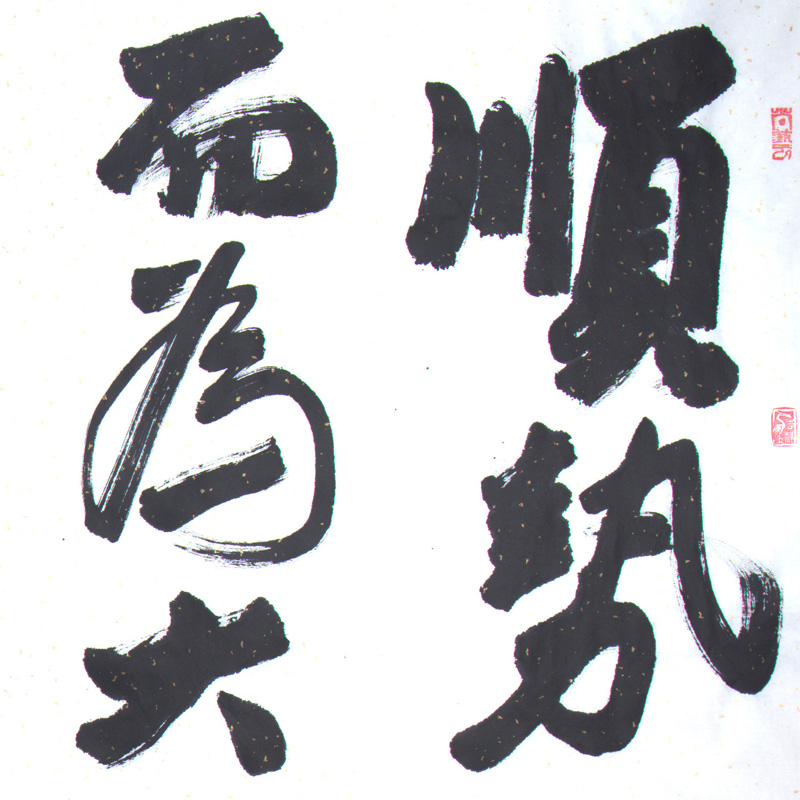 順勢
而為大